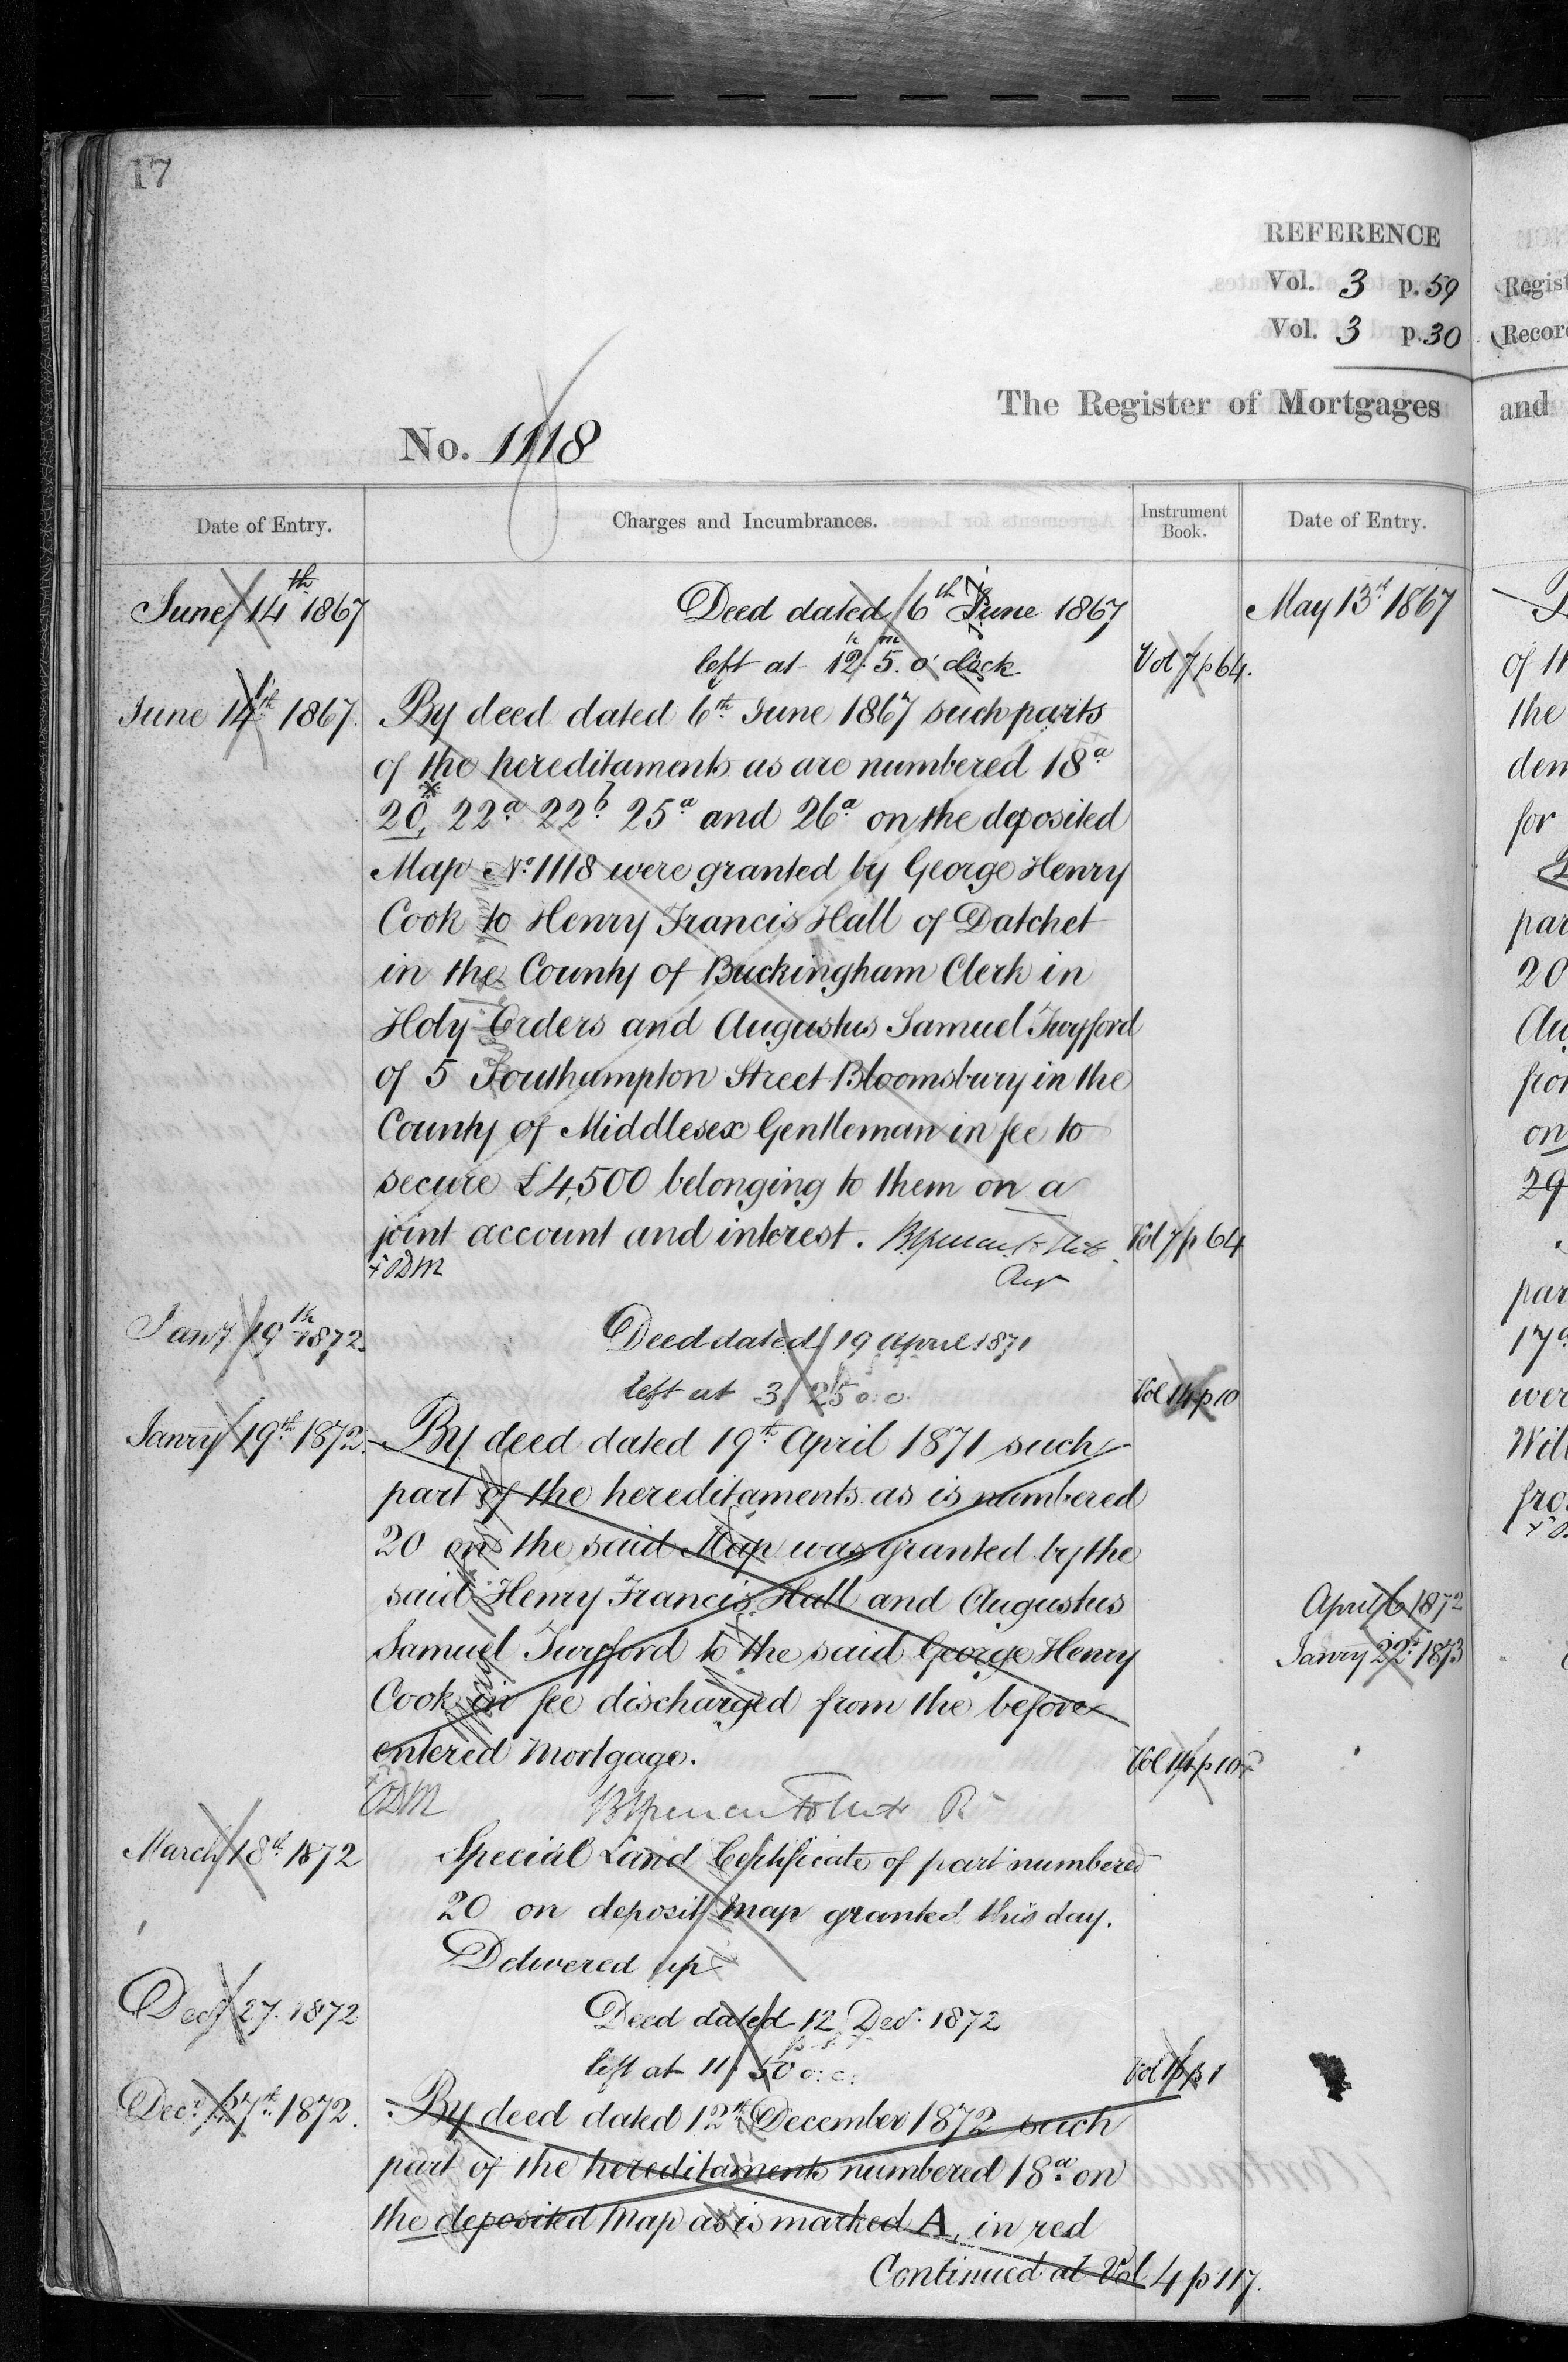 17
REFERENCE
Vol. 3 p. 59
Vol. 3 p. 30
The Register of Mortgages
No. 1118
Date of Entry.
Charges and Incumbrances.
Instrument Book.
Date of Entry.
June 14th 1867
Deed dated 6th June 1867
May 13th 1867
left at 12h. 5m. o'clock
Vol 7 p 64.
June 14th 1867.
By deed dated 6th June 1867 such parts
of the hereditaments as are numbered 18a
20, 22a 22b 25a and 26a on the deposited
Map No 1118 were granted by George Henry
Cook to Henry Francis Hall of Datchet
in the County of Buckingham Clerk in
Holy Orders and Augustus Samuel Twyford
of 5 Southampton Street Bloomsbury in the
County of Middlesex Gentleman in fee to
secure £4,500 belonging to them on a
joint account and interest.
Vol 7 p 64
Jany 19th 1872.
Deed dated 19 April 1871
left at 3. 25 o.c.
Vol 14 p 10
Janry 19th 1872
By deed dated 19th April 1871 such
part of the hereditaments as is numbered
20 on the said Map was granted by the
said Henry Francis Hall and Augustus
Samuel Twyford to the said George Henry
Cook in fee discharged from the before
entered Mortgage.
Vol 14 p 10
April 6 1872
Janry 22d 1873
March 18th 1872
Special Land Certificate of part numbered
20 on deposit map granted this day.
Delivered up
Decr 27. 1872
Deed dated 12 Decr. 1872
left at 11. 50 o.c.
Vol 16 p 1
Decr 27th 1872.
By deed dated 12th December 1872 such
part of the hereditaments numbered 18a on
the deposited Map as is marked A, in red
Continued at Vol 4 p 117.
Regist
Record
and
of
the
for
par
20
on
29
par